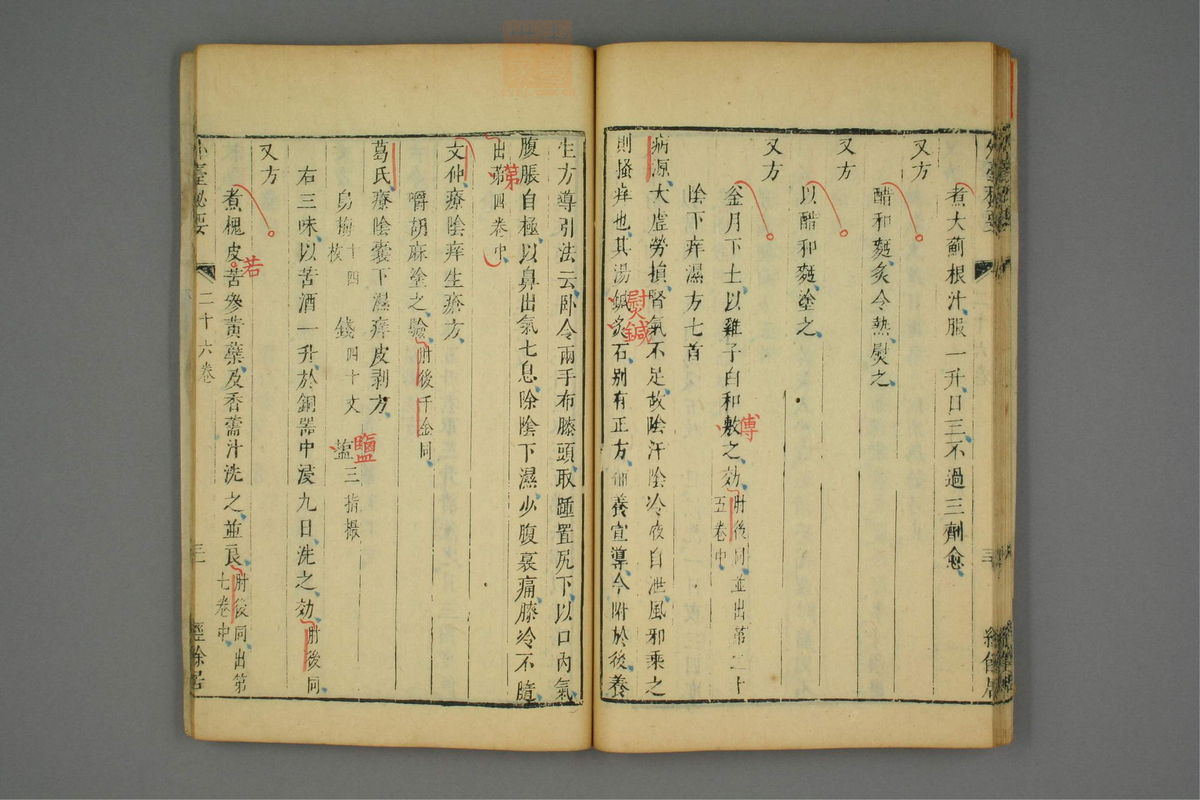 煮大薊根汁服一升日三不過三劑愈
又方
醋和麪炙令熱熨之
又方
以醋和麪塗之
又方
釜月下土以雞子白和敷之効肘後同並出第二十
五卷中
傅
陰下痒濕方七首
病源大虛勞損腎氣不足故陰汗陰冷液自泄風邪乘之
則搔痒也其湯鍼灸石別有正方補養宣導今附於後養
熨鍼
生方導引法云臥令兩手布膝頭取踵置尻下以口內氣
腹脹自極以鼻出氣七息除陰下濕少腹裏痛膝冷不隨
出第四卷中
第
文仲療陰痒生瘡方
嚼胡麻塗之驗肘後千金同
葛氏療陰囊下濕痒皮剥方
烏梅十四枚 錢四十文 盐三指撮
鹽
右三味以苦酒一升於銅器中浸九日洗之効肘後同
又方
煮槐皮苦參黃蘗及香薷汁洗之並良肘後同出第
七卷中
若
外臺秘要 二十六卷 三 經餘居